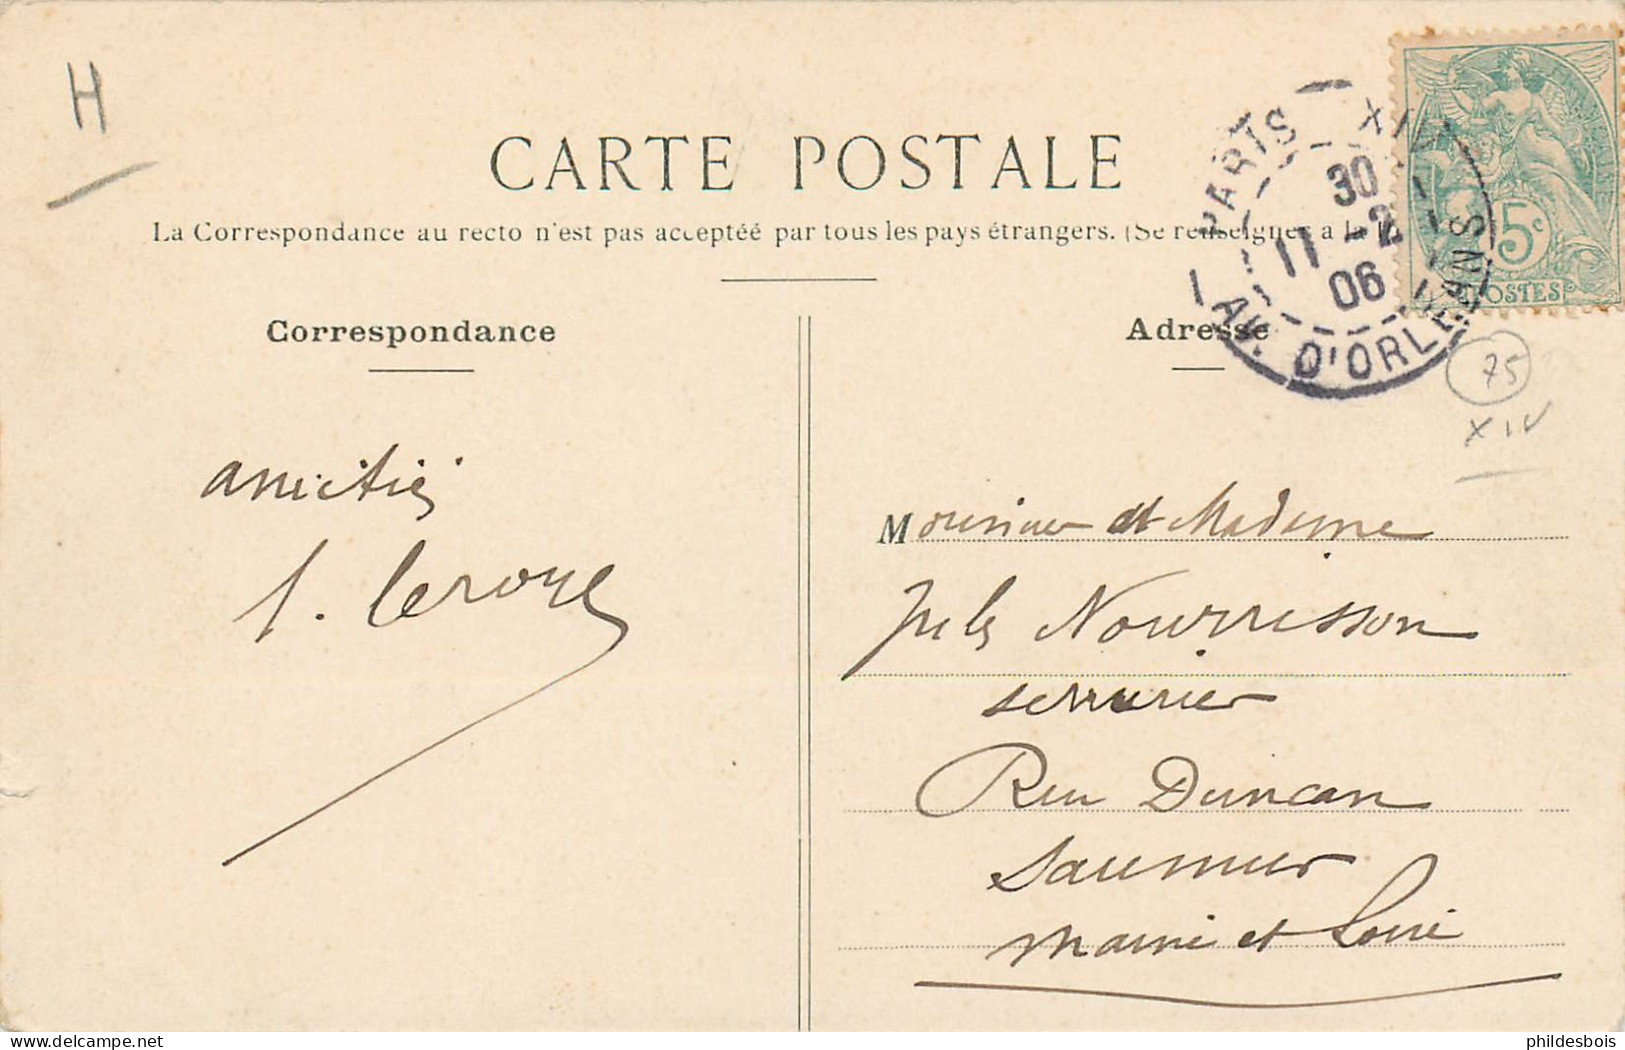 H
CARTE POSTALE
La Correspondance au recto n'est pas acceptéé par tous les pays étrangers. (Se renseigner a la
PARIS XIV
30
11 -2
06
AV. D'ORLEANS
5c
POSTES
Correspondance
Adresse
75
XIV
amitiés
Leroye
Monsieur et Madame
Jules Nourrisson
serrurier
Rue Duncan
Saumur
Maine et Loire
delcampe.net
phildesbois